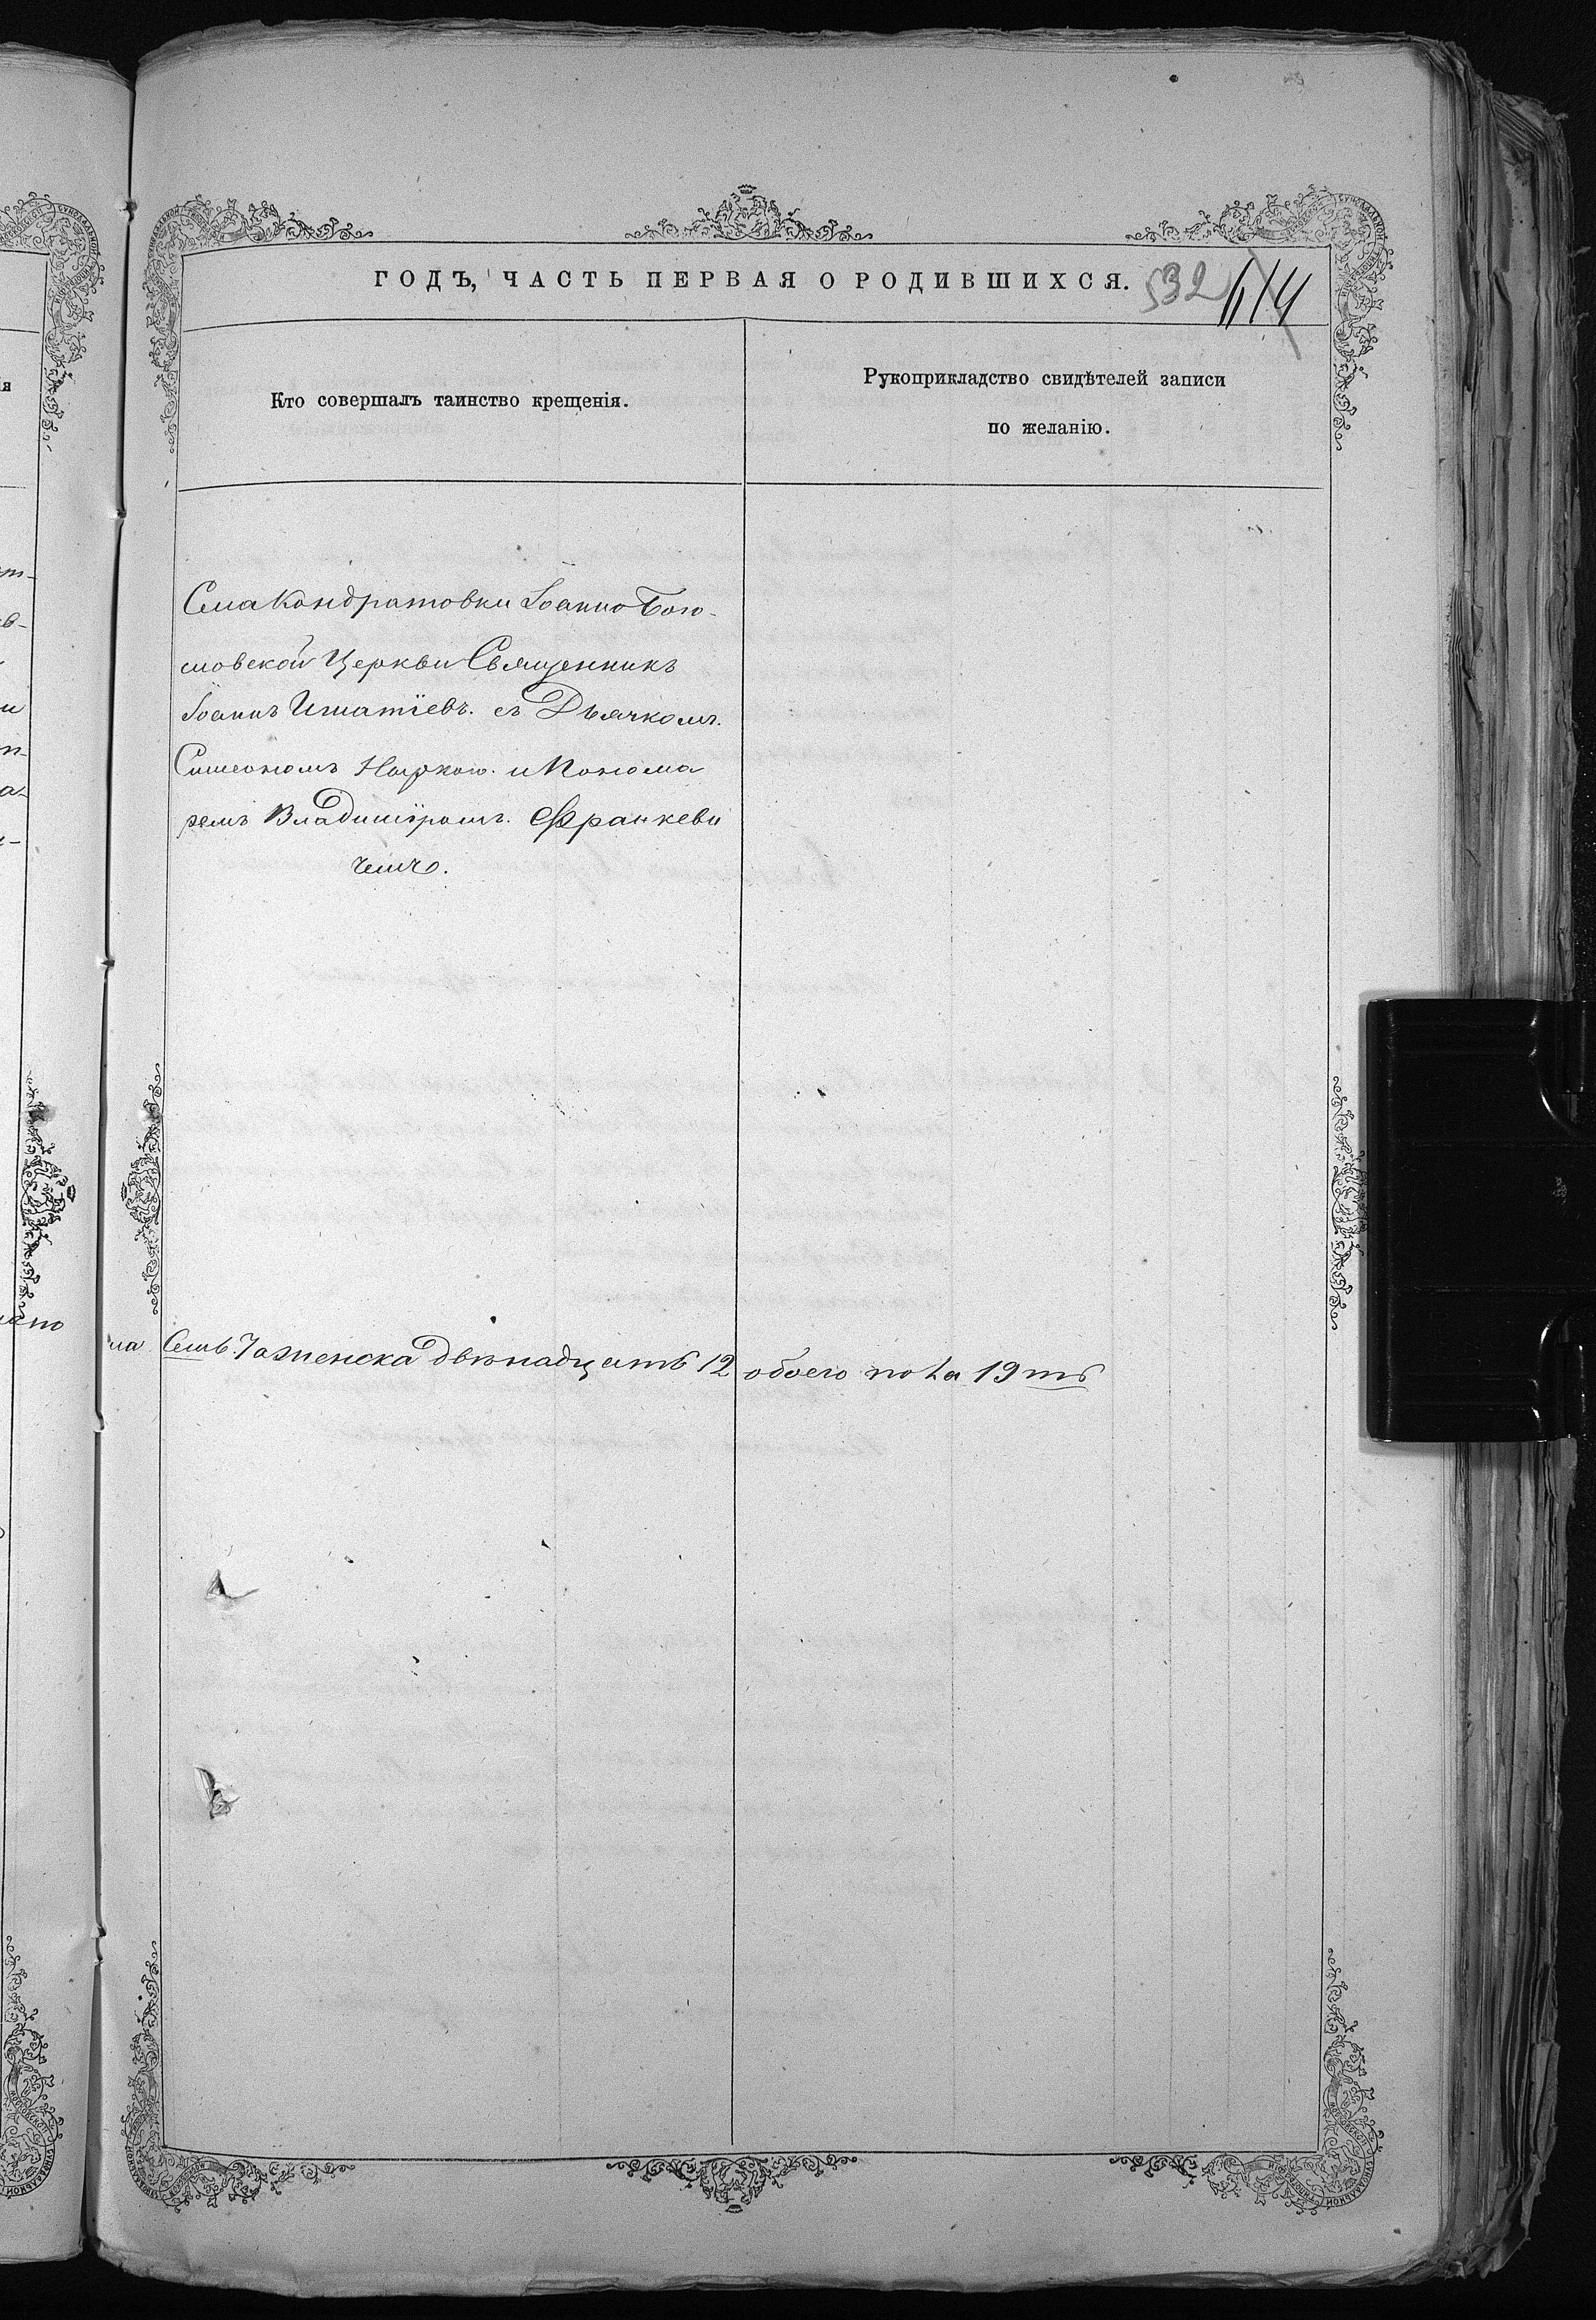 ГОДЪ, ЧАСТЬ ПЕРВАЯ О РОДИВШИХСЯ. 532 114
Кто совершалъ таинство крещенія.
Рукоприкладство свидѣтелей записи
по желанію.
Села Кондратовки Іоанно Бого-
словской Церкви Священникъ
Іоаннъ Игнатіевъ. съ Дьячкомъ.
Симеономъ и Понома
ремъ Владиміромъ. Франкеви
чемъ.
ла Семь. Женска двѣнадцать 12 обоего пола 19ть